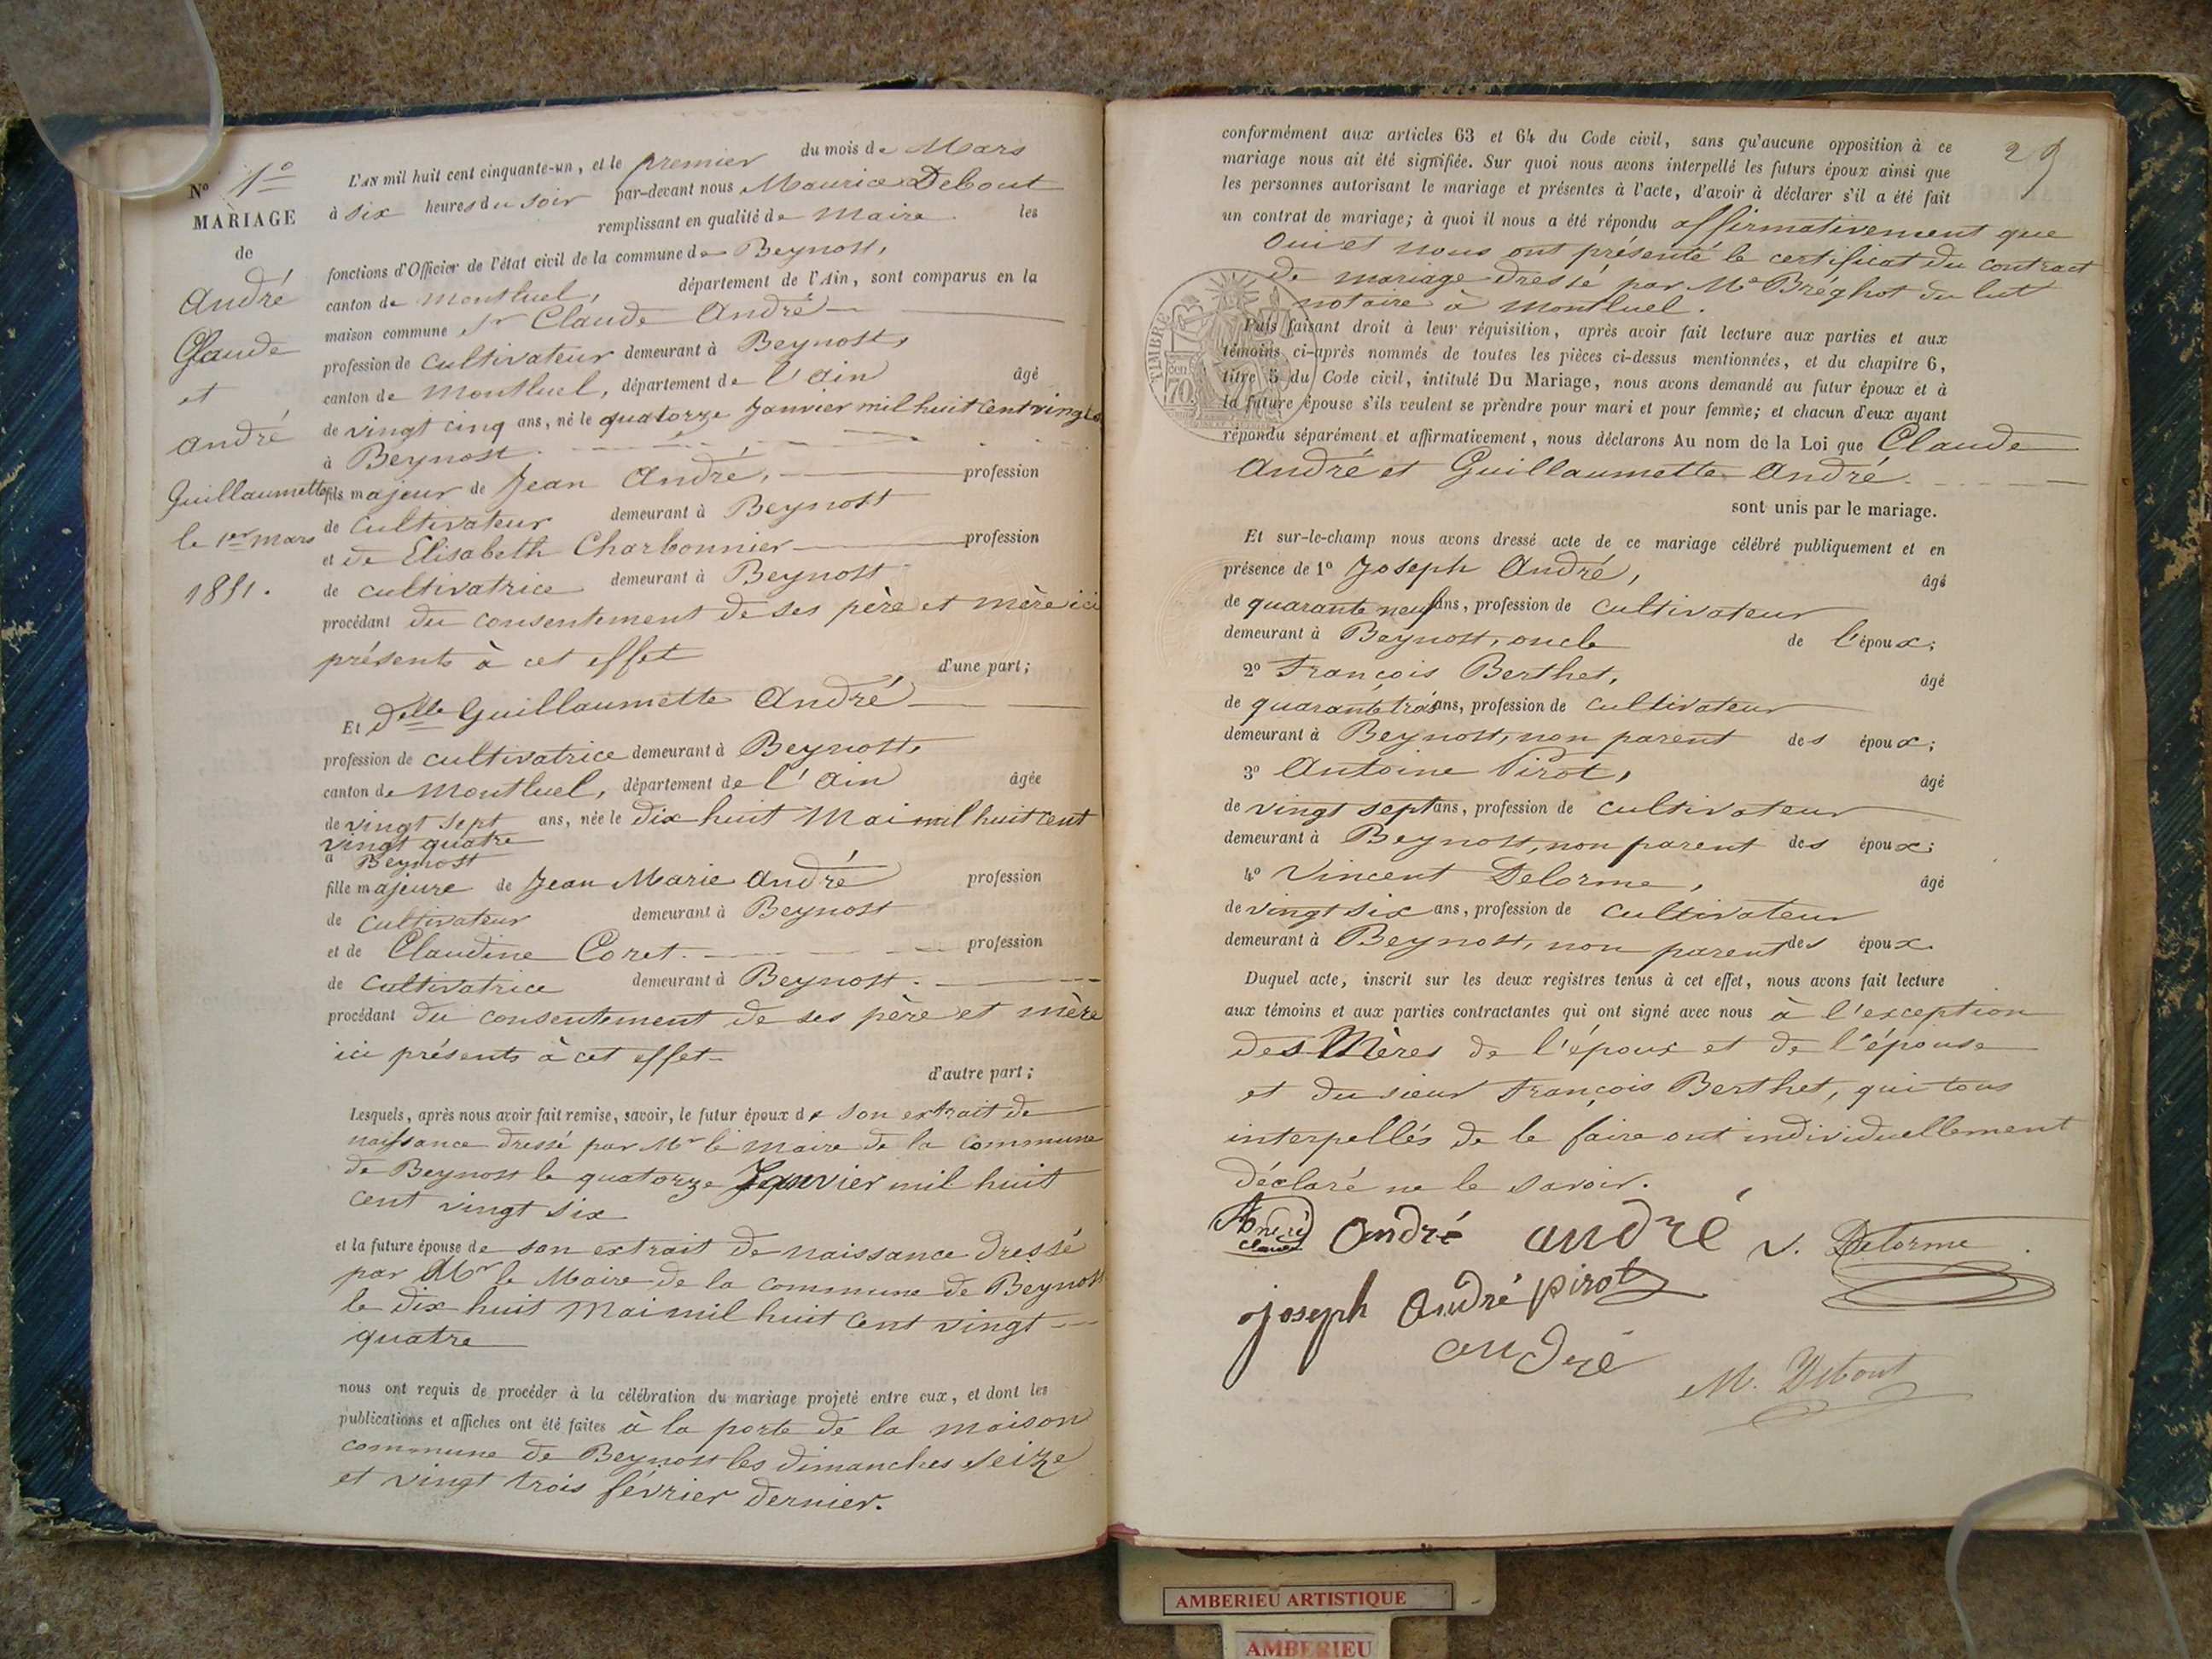 Nº 1º
MARIAGE
de
André
Claude
et
André
Guillaumette
le 1er mars
1851.
L'AN mil huit cent cinquante-un, et le premier du mois de Mars
à six heures du soir par-devant nous Maurice Debout
remplissant en qualité de Maire les
fonctions d'Officier de l'état civil de la commune de Beynost,
canton de Montluel, département de l'Ain, sont comparus en la
maison commune Sr Claude André
profession de cultivateur demeurant à Beynost,
canton de Montluel, département de l'Ain âgé
de vingt cinq ans, né le quatorze Janvier mil huit cent vingt
à Beynost.
fils majeur de Jean André, profession
de cultivateur demeurant à Beynost
et de Elisabeth Charbonnier profession
de cultivatrice demeurant à Beynost
procédant du consentement de ses père et mère ici
présents à cet effet d'une part;
Et Delle Guillaumette André
profession de cultivatrice demeurant à Beynost,
canton de Montluel, département de l'Ain âgée
de vingt sept ans, née le dix huit Mai mil huit cent
vingt quatre
à Beynost
fille majeure de Jean Marie André profession
de cultivateur demeurant à Beynost
et de Claudine Coret. profession
de cultivatrice demeurant à Beynost.
procédant du consentement de ses père et mère
ici présents à cet effet
d'autre part;
Lesquels, après nous avoir fait remise, savoir, le futur époux de son extrait de
naissance dressé par Mr le Maire de la Commune
de Beynost le quatorze Janvier mil huit
cent vingt six
et la future épouse de son extrait de naissance dressé
par Mr le Maire de la commune de Beynost
le dix huit Mai mil huit cent vingt
quatre
nous ont requis de procéder à la célébration du mariage projeté entre eux, et dont les
publications et affiches ont été faites à la porte de la maison
commune de Beynost les dimanches seize
et vingt trois février dernier.
29
conformément aux articles 63 et 64 du Code civil, sans qu'aucune opposition à ce
mariage nous ait été signifiée. Sur quoi nous avons interpellé les futurs époux ainsi que
les personnes autorisant le mariage et présentes à l'acte, d'avoir à déclarer s'il a été fait
un contrat de mariage; à quoi il nous a été répondu affirmativement que
oui et nous ont présenté le certificat du contract
de mariage dressé par Me Bréghot du lut
notaire à Montluel.
TIMBRE
70
Puis faisant droit à leur réquisition, après avoir fait lecture aux parties et aux
témoins ci-après nommés de toutes les pièces ci-dessus mentionnées, et du chapitre 6,
titre 5 du Code civil, intitulé Du Mariage, nous avons demandé au futur époux et à
la future épouse s'ils veulent se prendre pour mari et pour femme; et chacun d'eux ayant
répondu séparément et affirmativement, nous déclarons Au nom de la Loi que Claude
André et Guillaumette André
sont unis par le mariage.
Et sur-le-champ nous avons dressé acte de ce mariage célébré publiquement et en
présence de 1º Joseph André, âgé
de quarante neuf ans, profession de cultivateur
demeurant à Beynost, oncle de l'époux;
2º François Berthet, âgé
de quarante trois ans, profession de cultivateur
demeurant à Beynost, non parent des époux;
3º Antoine Pirot, âgé
de vingt sept ans, profession de cultivateur
demeurant à Beynost, non parent des époux;
4º Vincent Delorme, âgé
de vingt six ans, profession de cultivateur
demeurant à Beynost, non parent des époux.
Duquel acte, inscrit sur les deux registres tenus à cet effet, nous avons fait lecture
aux témoins et aux parties contractantes qui ont signé avec nous à l'exception
des Mères de l'époux et de l'épouse
et du sieur François Berthet, qui tous
interpellés de le faire ont individuellement
déclaré ne le savoir.
André André andré V. Delorme
Claude
joseph André pirot
andré
M. Debout
AMBERIEU ARTISTIQUE
AMBERIEU